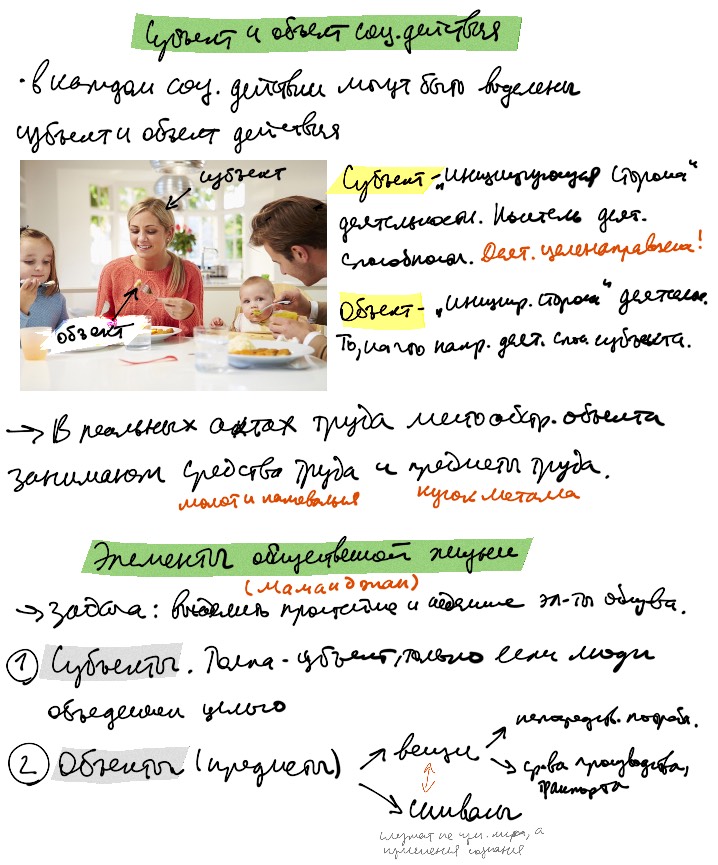 Субъект и объект соц. действия
· В каждом соц. действии могут быть выделены
субъект и объект действия
субъект
объект
Субъект - „инициирующая сторона“
деятельности. Носитель деят.
способности. Деят. целенаправлена!
Объект - „инициир. сторона“ деятельн.
То, на что напр. деят. спос. субъекта.
→ В реальных актах труда место абстр. объекта
занимают средства труда и предметы труда.
молот и наковальня кусок металла
Элементы общественной жизни
(Мамаи допаи)
→ Задача: выделить простейшие и эл-ты общ-ва.
① Субъекты. Толпа - субъект, только если люди
объединены целью
② Объекты (предметы)
вещи
непосредств. потребл.
срва производства,
транспорта
символы
служат не изм. мира, а
изменения сознания